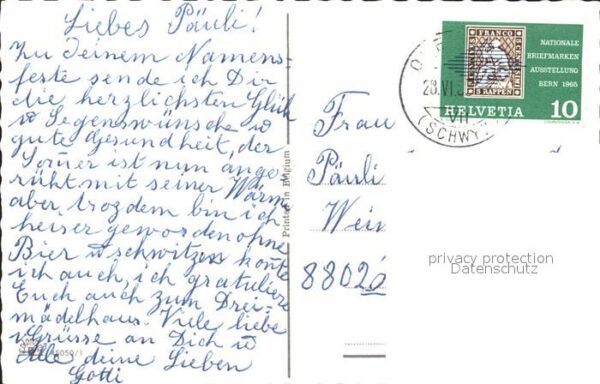 Liebes Päuli!
Zu Deinem Namens-
feste sende ich Dir
die herzlichsten Glück
u Segenswünsche u
gute Gesundheit, der
Somer ist nun ange-
rükt mit seiner Wärme
aber, trozdem bin ich
heiser geworden ohne
Bier u schwitzen konte
ich auch, ich gratuliere
Euch auch zum Drei-
mädelhaus. Viele liebe
Grüsse an Dich u
Alle deine Lieben
Gotti
Printed in Belgium
Frau
Päuli
Wein
8802
NATIONALE
BRIEFMARKEN
AUSSTELLUNG
BERN 1965
FRANCO
5 RAPPEN
HELVETIA 10
28.VI.
(SCHWYZ)
privacy protection
Datenschutz